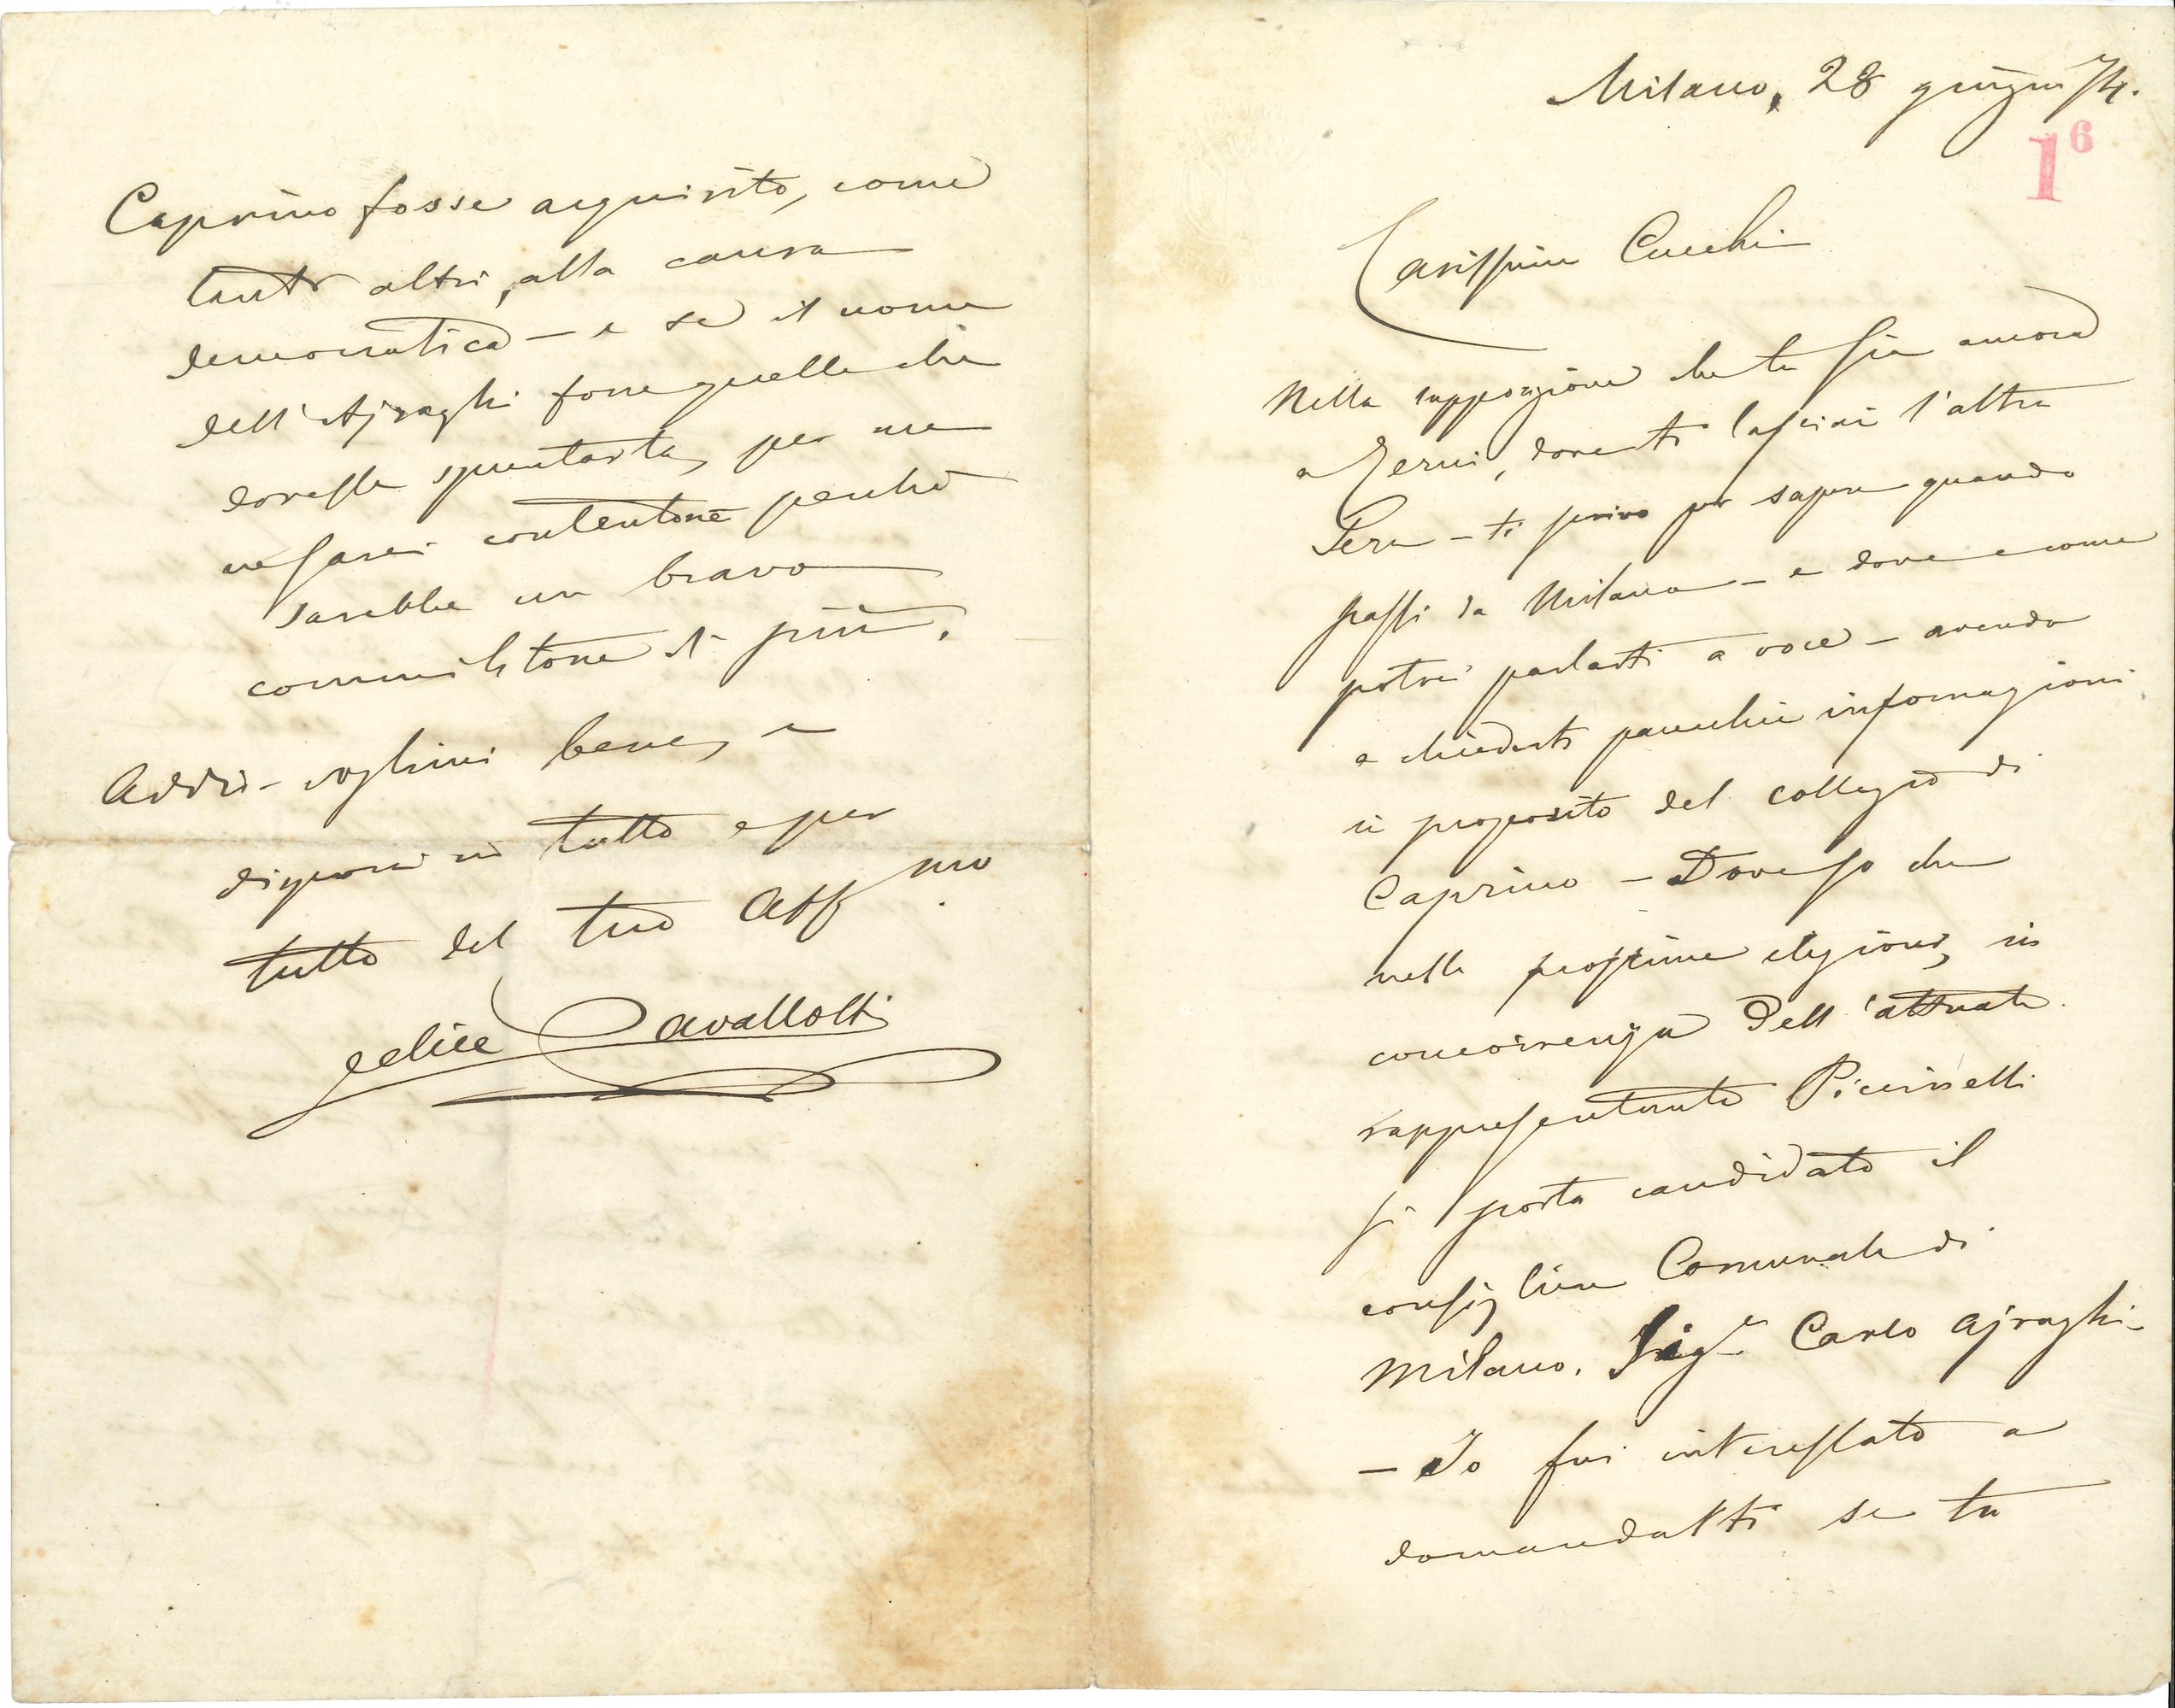 Milano, 28 giugno 74.
16
Carissimo Cucchi
Nella supposizione che tu sia ancora
a Terni, dove ti lasciai l'altra
sera – ti scrivo per sapere quando
passi da Milano – e dove e come
potrei parlarti a voce – avendo
a chiederti parecchie informazioni
in proposito del collegio di
Caprino – Dove so che
nelle prossime elezioni, in
concorrenza dell'attuale
rappresentante Piccinelli
si porta candidato il
consigliere Comunale di
Milano. Sigr Carlo Ajraghi –
– Io fui interessato a
domandarti se tu
Caprino fosse acquisito, come
tanti altri, alla causa
democratica – e se il nome
dell'Ajraghi fosse quello che
dovesse spuntarla, per me
ne sarei contentone perché
sarebbe un bravo
commilitone di più.
Addio – voglimi bene, e
disponi in tutto e per
tutto del tuo Aff mo
Felice Cavallotti